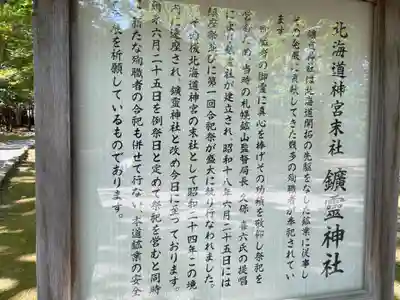 北海道神宮末社 鑛霊神社
鑛霊神社は北海道開拓の先駆をなした鉱業に従事し
その発展に貢献してきた幾多の殉職者が奉祀されてい
ます。
御霊に真心を捧げその功績を敬仰し祭祀を
営むため、当時の札幌鉱山監督局長、久保喜六氏の提唱
により鑛霊社が建立され、昭和十八年六月二十五日には
鎮座祭並びに第一回合祀祭が盛大に執り行なわれました。
その後北海道神宮の末社として昭和二十四年この境
内に遷座され、鑛霊神社と改め今日に至っております。
毎年六月二十五日を例祭日と定めて祭祀を営むと同時
に新たな殉職者の合祀も併せて行ない、本道鉱業の安全
を祈願しているものであります。